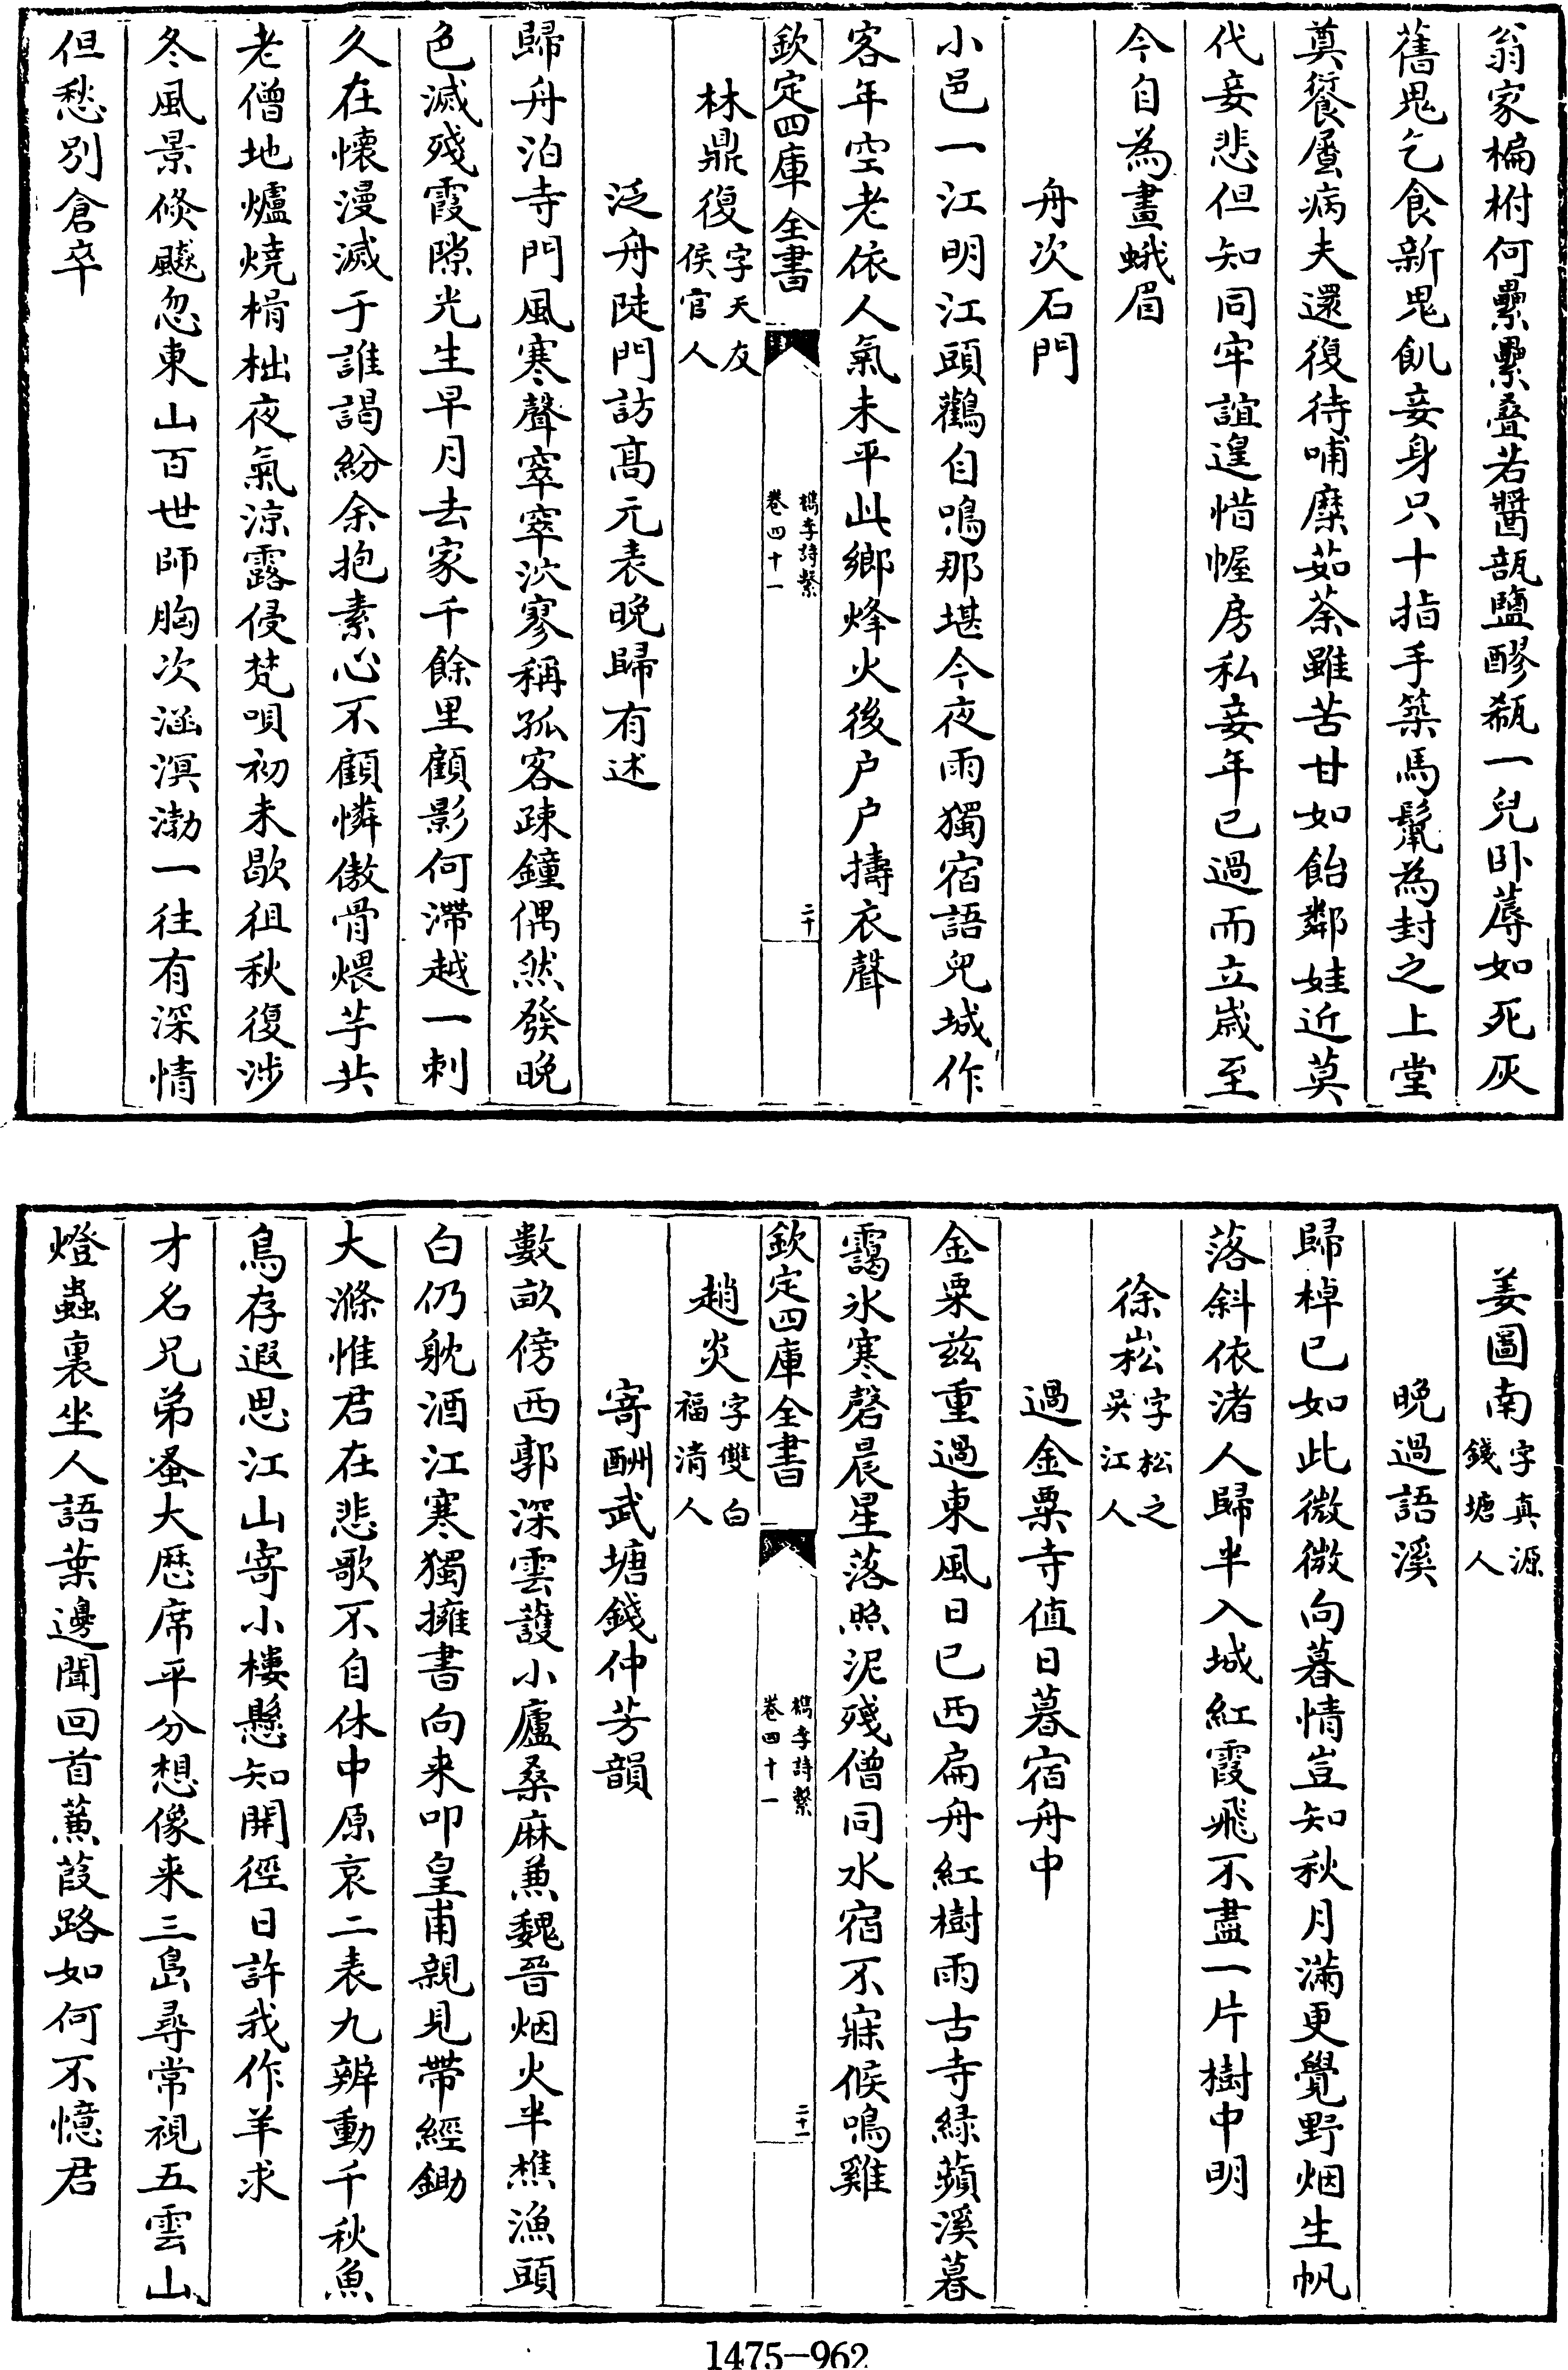 翁家楄柎何纍纍叠若醬瓿鹽醪瓶一兒卧蓐如死灰
舊鬼乞食新鬼飢妾身只十指手築馬鬛為封之上堂
奠餐蜃病夫還復待哺糜茹荼雖苦甘如飴鄰娃近莫
代妾悲但知同牢誼遑惜幄房私妾年已過而立歲至
今自為畫蛾眉
舟次石門
小邑一江明江頭鸛自鳴那堪今夜雨獨宿語兒城作
客年空老依人氣未平此鄉烽火後户户擣衣聲
欽定四庫全書
檇李詩繫
卷四十一
二十
林鼎復字天友
侯官人
泛舟陡門訪高元表晚歸有述
歸舟泊寺門風寒聲窣窣泬寥稱孤客疎鐘偶然發晚
色滅殘霞隙光生早月去家千餘里顧影何滯越一刺
久在懷漫滅于誰謁紛余抱素心不顧憐傲骨煨芋共
老僧地爐燒榾柮夜氣涼露侵梵唄初未歇徂秋復涉
冬風景倐飈忽東山百世師胸次涵溟渤一往有深情
但愁别倉卒
姜圖南字真源
錢塘人
晚過語溪
歸棹已如此微微向暮情豈知秋月滿更覺野烟生帆
落斜依渚人歸半入城紅霞飛不盡一片樹中明
徐崧字松之
吳江人
過金粟寺值日暮宿舟中
金粟兹重過東風日已西扁舟紅樹雨古寺緑蘋溪暮
靄氷寒磬晨星落照泥殘僧同水宿不寐候鳴雞
欽定四庫全書
檇李詩繫
卷四十一
二十一
趙炎字雙白
福清人
寄酬武塘錢仲芳韻
數畝傍西郭深雲護小廬桑麻兼魏晉烟火半樵漁頭
白仍躭酒江寒獨擁書向来叩皇甫親見帶經鋤
大滌惟君在悲歌不自休中原哀二表九辨動千秋魚
鳥存遐思江山寄小樓懸知開徑日許我作羊求
才名兄弟蚤大歴席平分想像来三島尋常視五雲山
燈蟲裏坐人語葉邊聞回首蒹葭路如何不憶君
1475-962